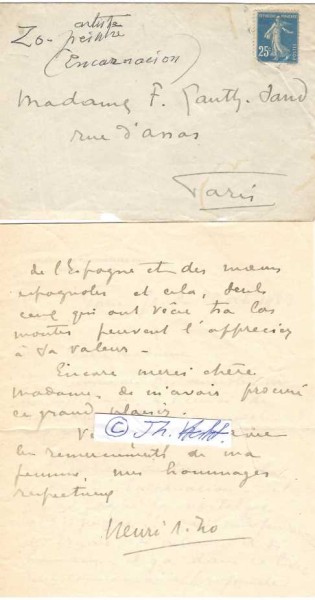 Zo - artiste
peintre
(Encarnacion)
REPUBLIQUE FRANÇAISE
25c
Madame F. Gauth. Sand
rue d'Assas
Paris
de l'Espagne et des mœurs
espagnoles et cela, seuls
ceux qui ont vécu tra los
montes peuvent l'apprécier
à sa valeur -
Encore merci chère
madame de m'avoir procuré
ce grand plaisir.
© Th. Vollert
les remerciements de ma
femme, mes hommages
respectueux
Henri A. Zo